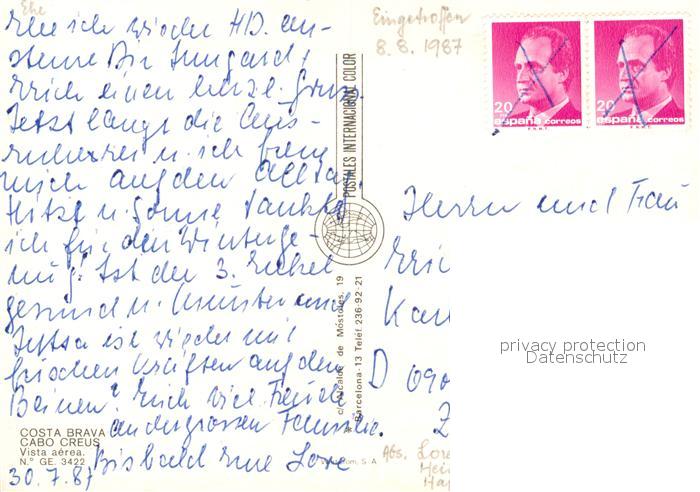 Ehe
Ehe ich wieder HD. an-
steure Dir Irmgard,
Erich einen herzl. Gruß
Jetzt langt die Aus-
ruherei u. ich freu
mich auf den Alltag.
Hitze u. Sonne tankte
ich für den Winter ge-
nug! Ist der 3. Enkel
gesund u. munter und
Jutta ist wieder mit
frischen Kräften auf den
Beinen? Euch viel Freude
an der grossen Familie.
Bis bald Eure Lore
30.7.87
COSTA BRAVA
CABO CREUS
Vista aérea.
N.º GE. 3422
POSTALES INTERNACIONAL COLOR
c/. Alcalde de Móstoles, 19
Barcelona-13 Teléf. 236-92-21
S-A
Eingetroffen
8. 8. 1987
20
españa correos
F.N.M.T.
20
españa correos
F.N.M.T.
Herrn und Frau
Eric
Kar
D 690
Abs. Lore
Hei
privacy protection
Datenschutz